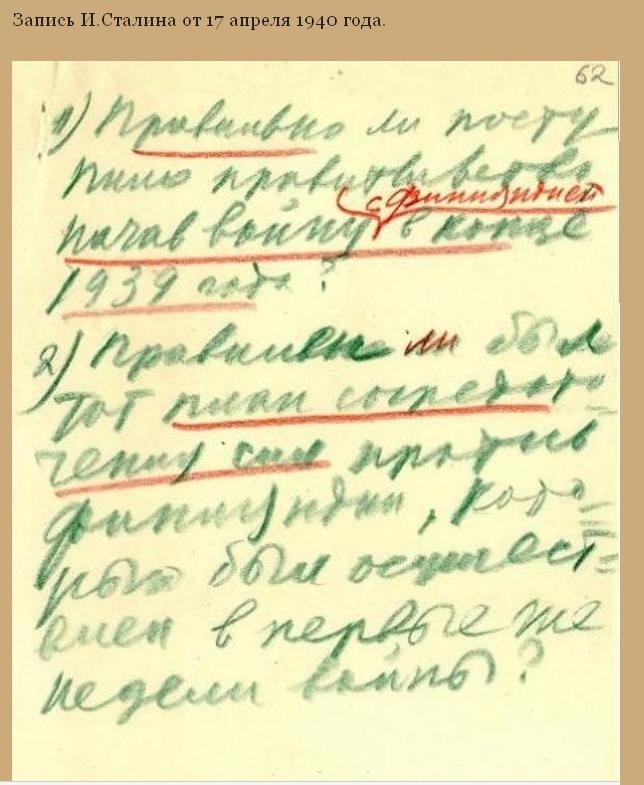 Запись И.Сталина от 17 апреля 1940 года.
62
1) Правильно ли посту
пило правительство
с Финляндией
начав войну в конце
1939 года?
2) Правилен ли был
тот план сосредото-
чения сил против
Финляндии, кото-
рый был осуществ-
лен в первые же
недели войны?